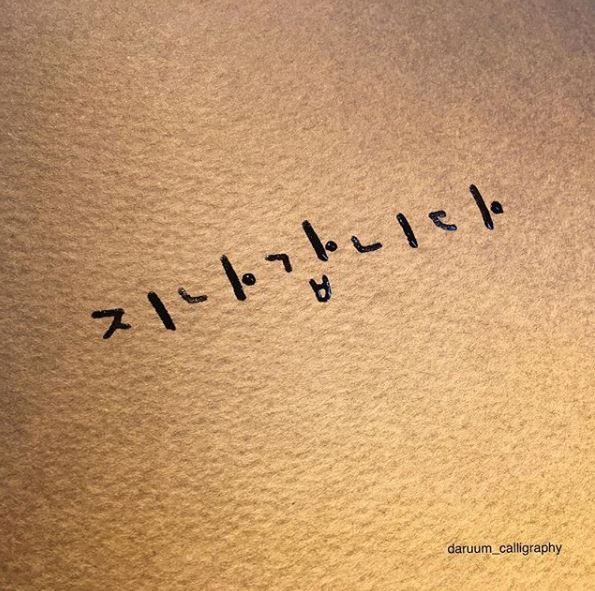 지나갑니다
daruum_calligraphy